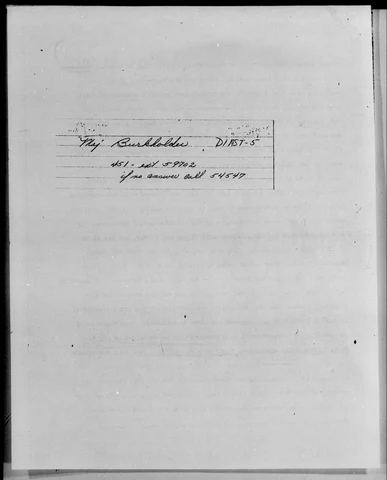 Maj Burkholder DIAST-5
451 - ext. 59702
if no answer call 54547